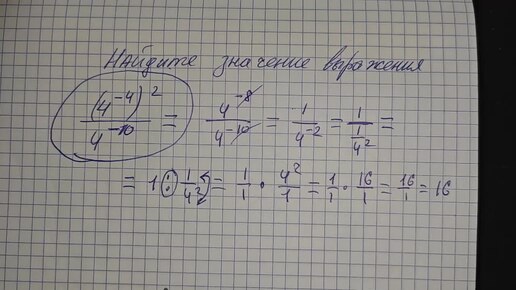 Найдите значение выражения
(4⁻⁴)² / 4⁻¹⁰ = 4⁻⁸ / 4⁻¹⁰ = 1 / 4⁻² = 1 / (1 / 4²) =
= 1 : 1 / 4² = 1 / 1 · 4² / 1 = 1 / 1 · 16 / 1 = 16 / 1 = 16